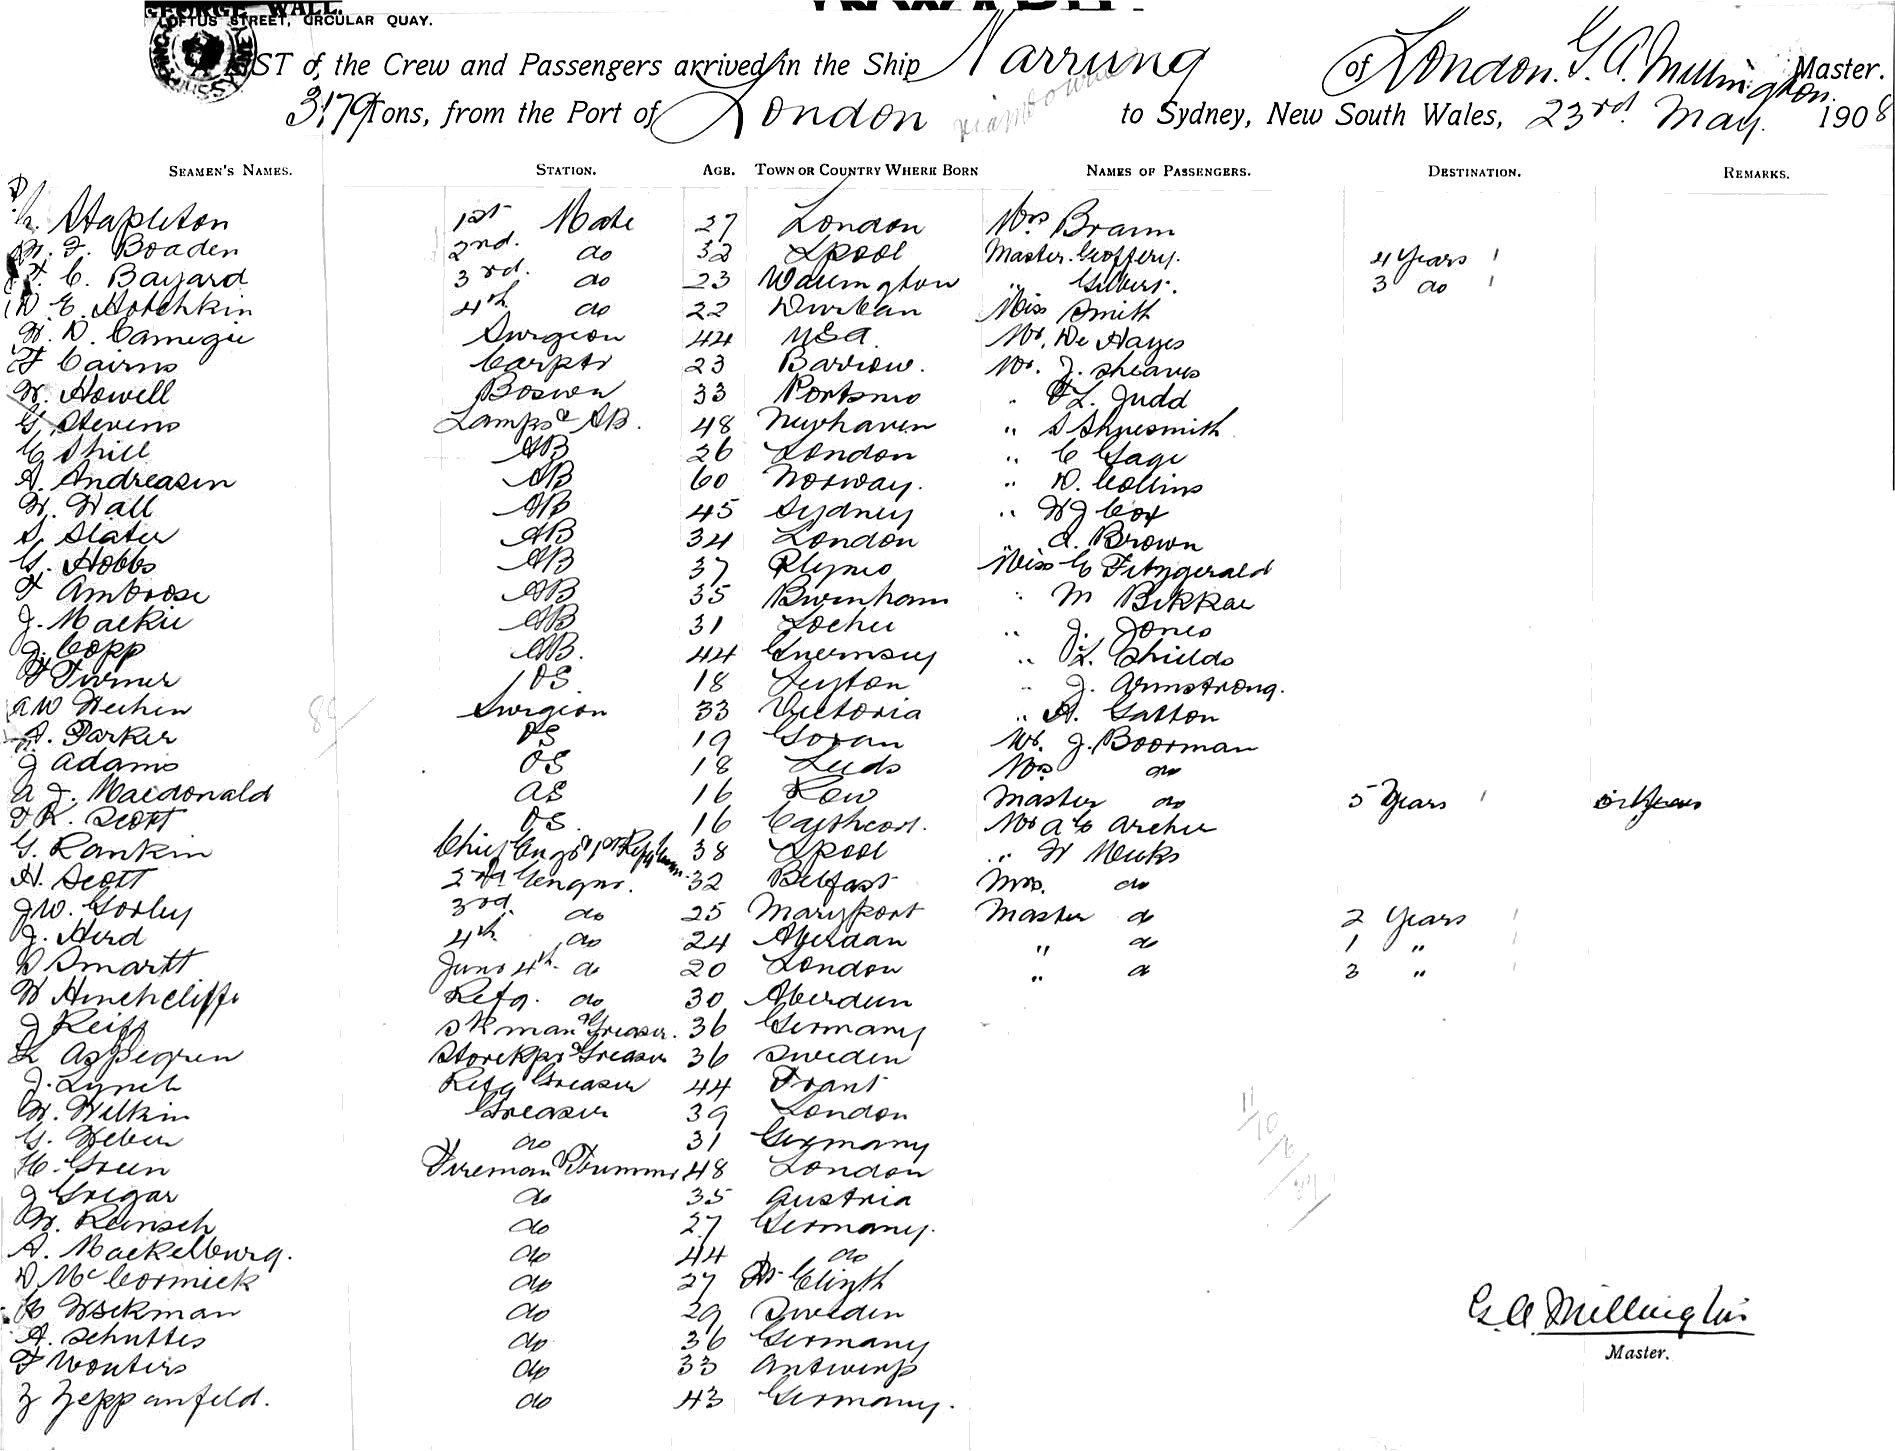 GEORGE WALL.
LOFTUS STREET, CIRCULAR QUAY.
LIST of the Crew and Passengers arrived in the Ship Narrung of London. G. A. Millington Master.
3179 Tons, from the Port of London to Sydney, New South Wales, 23rd May. 1908
SEAMEN'S NAMES. STATION. AGE. TOWN OR COUNTRY WHERE BORN NAMES OF PASSENGERS. DESTINATION. REMARKS.
Stapleton 1st Mate 27 London Mrs Braun
Boaden 2nd. do 32 Lpool Master. Geoffery. 4 Years
C. Bayard 3rd. do 23 Warrington " Gilbert. 3 do
W. E. Hotchkin 4th do 22 Durban Miss Smith
W. D. Carnegie Surgeon 44 USA. Mr. De Hayes
F Cairns Carptr 23 Barrow. Mr. J. Sheaves
W. Howell Boswn 33 Portsmo " L. Judd
G. Stevens Lamps & AB. 48 Newhaven " S Shyesmith
C Shill AB 26 London " C Gage
A. Andreasen AB 60 Norway. " D. Collins
W. Wall AB 45 Sydney " W J Cox
S. Slater AB 34 London " A. Brown
G. Hobbs AB 37 Plymo Miss C Fitzgerald
F Ambrose AB 35 Burnham " M Bikkae
J. Mackie AB 31 Lochee " J. Jones
J. Copp AB. 44 Guernsey " L. Shields
F Turner OS. 18 Leyton " J. Armstrong.
A W Meehin Surgeon 33 Victoria " A. Gatton
A. Parker OS 19 Govan Mr. J. Boorman
J Adams OS 18 Leeds Mrs do
A J. Macdonald OS 16 Row Master do 5 Years
F R. Scott OS. 16 Cathcart. Mr A C Archer
G. Rankin Chief Engr & 1st Refg Engr. 38 Lpool " W Meeks
H. Scott 2nd Engnr. 32 Belfast Mrs. do
J W. Gorley 3rd. do 25 Maryport Master do 2 Years
J. Herd 4th do 24 Aberdeen " do 1 "
D Smartt Junr 4th do 20 London " do 3 "
W Hinchcliffe Refg. do 30 Aberdeen
J Reiff Dkman & Greaser. 36 Germany
L Aspegren Storekpr & Greaser 36 Sweden
J. Lynch Refg Greaser 44 Frant
W. Wilkin Greaser 39 London
G. Weber do 31 Germany
H. Green Fireman & Trimmr 48 London
J Gregar do 35 Austria
W. Reinsch do 27 Germany.
A. Mackelburg. do 44 do
D McCormick do 27 Pt Elizth
C Wickman do 29 Sweden
A. Schuttes do 36 Germany
F Wouters do 33 Antwerp
Z Zeppanfeld. do 43 Germany.
G. A. Millington
Master.